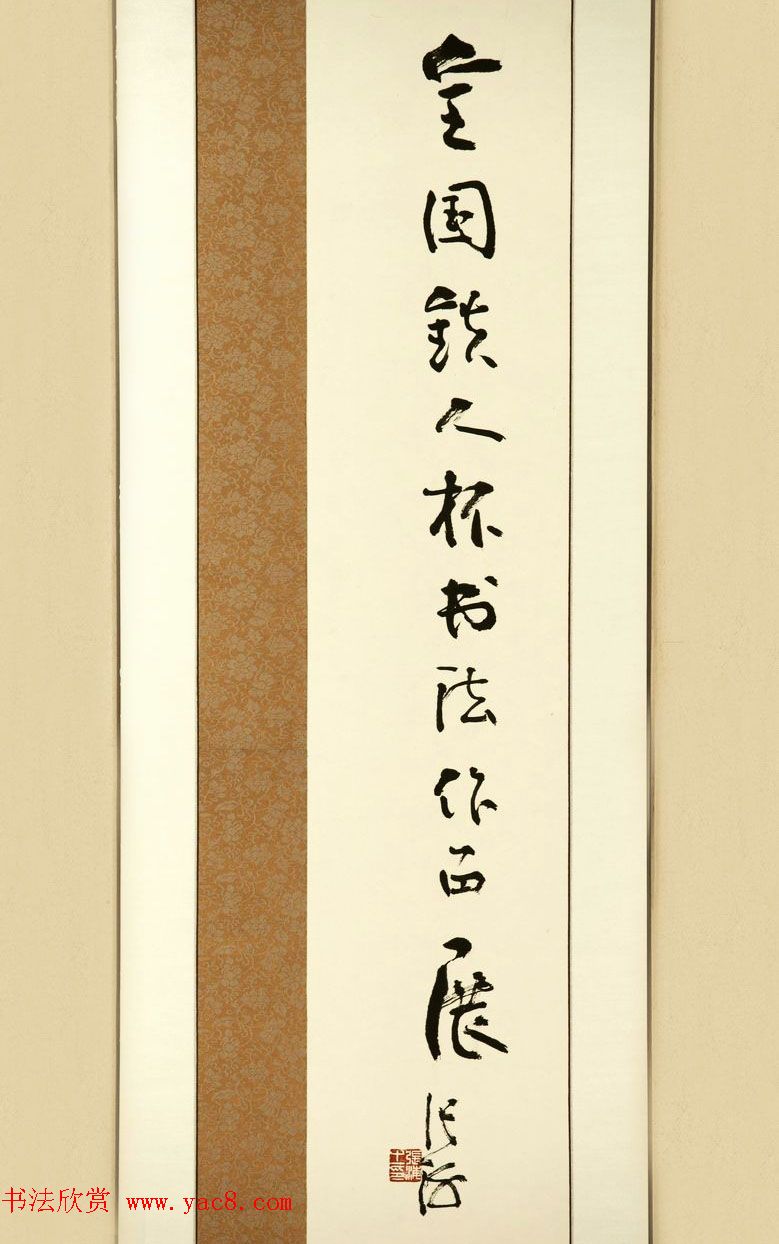 全国铁人杯书法作品展
张海
书法欣赏 www.yac8.com